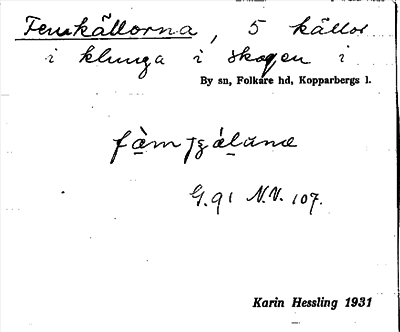 Femkällorna, 5 källor
i klunga i skogen i
By sn, Folkare hd, Kopparbergs l.
G.91 N.V. 107.
Karin Hessling 1931